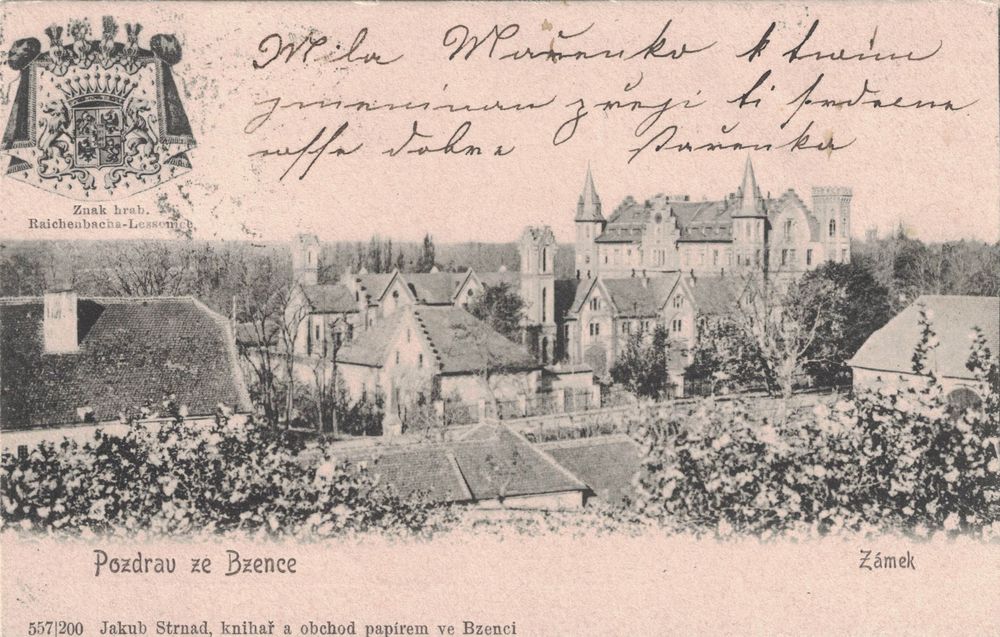 Mila Mařenko k tvoim
jmeninam zřeji ti srdecne
vsse dobre Stařenka
Znak hrab.
Raichenbacha-Lessonice
Pozdrav ze Bzence
Zámek
557|200 Jakub Strnad, knihař a obchod papírem ve Bzenci